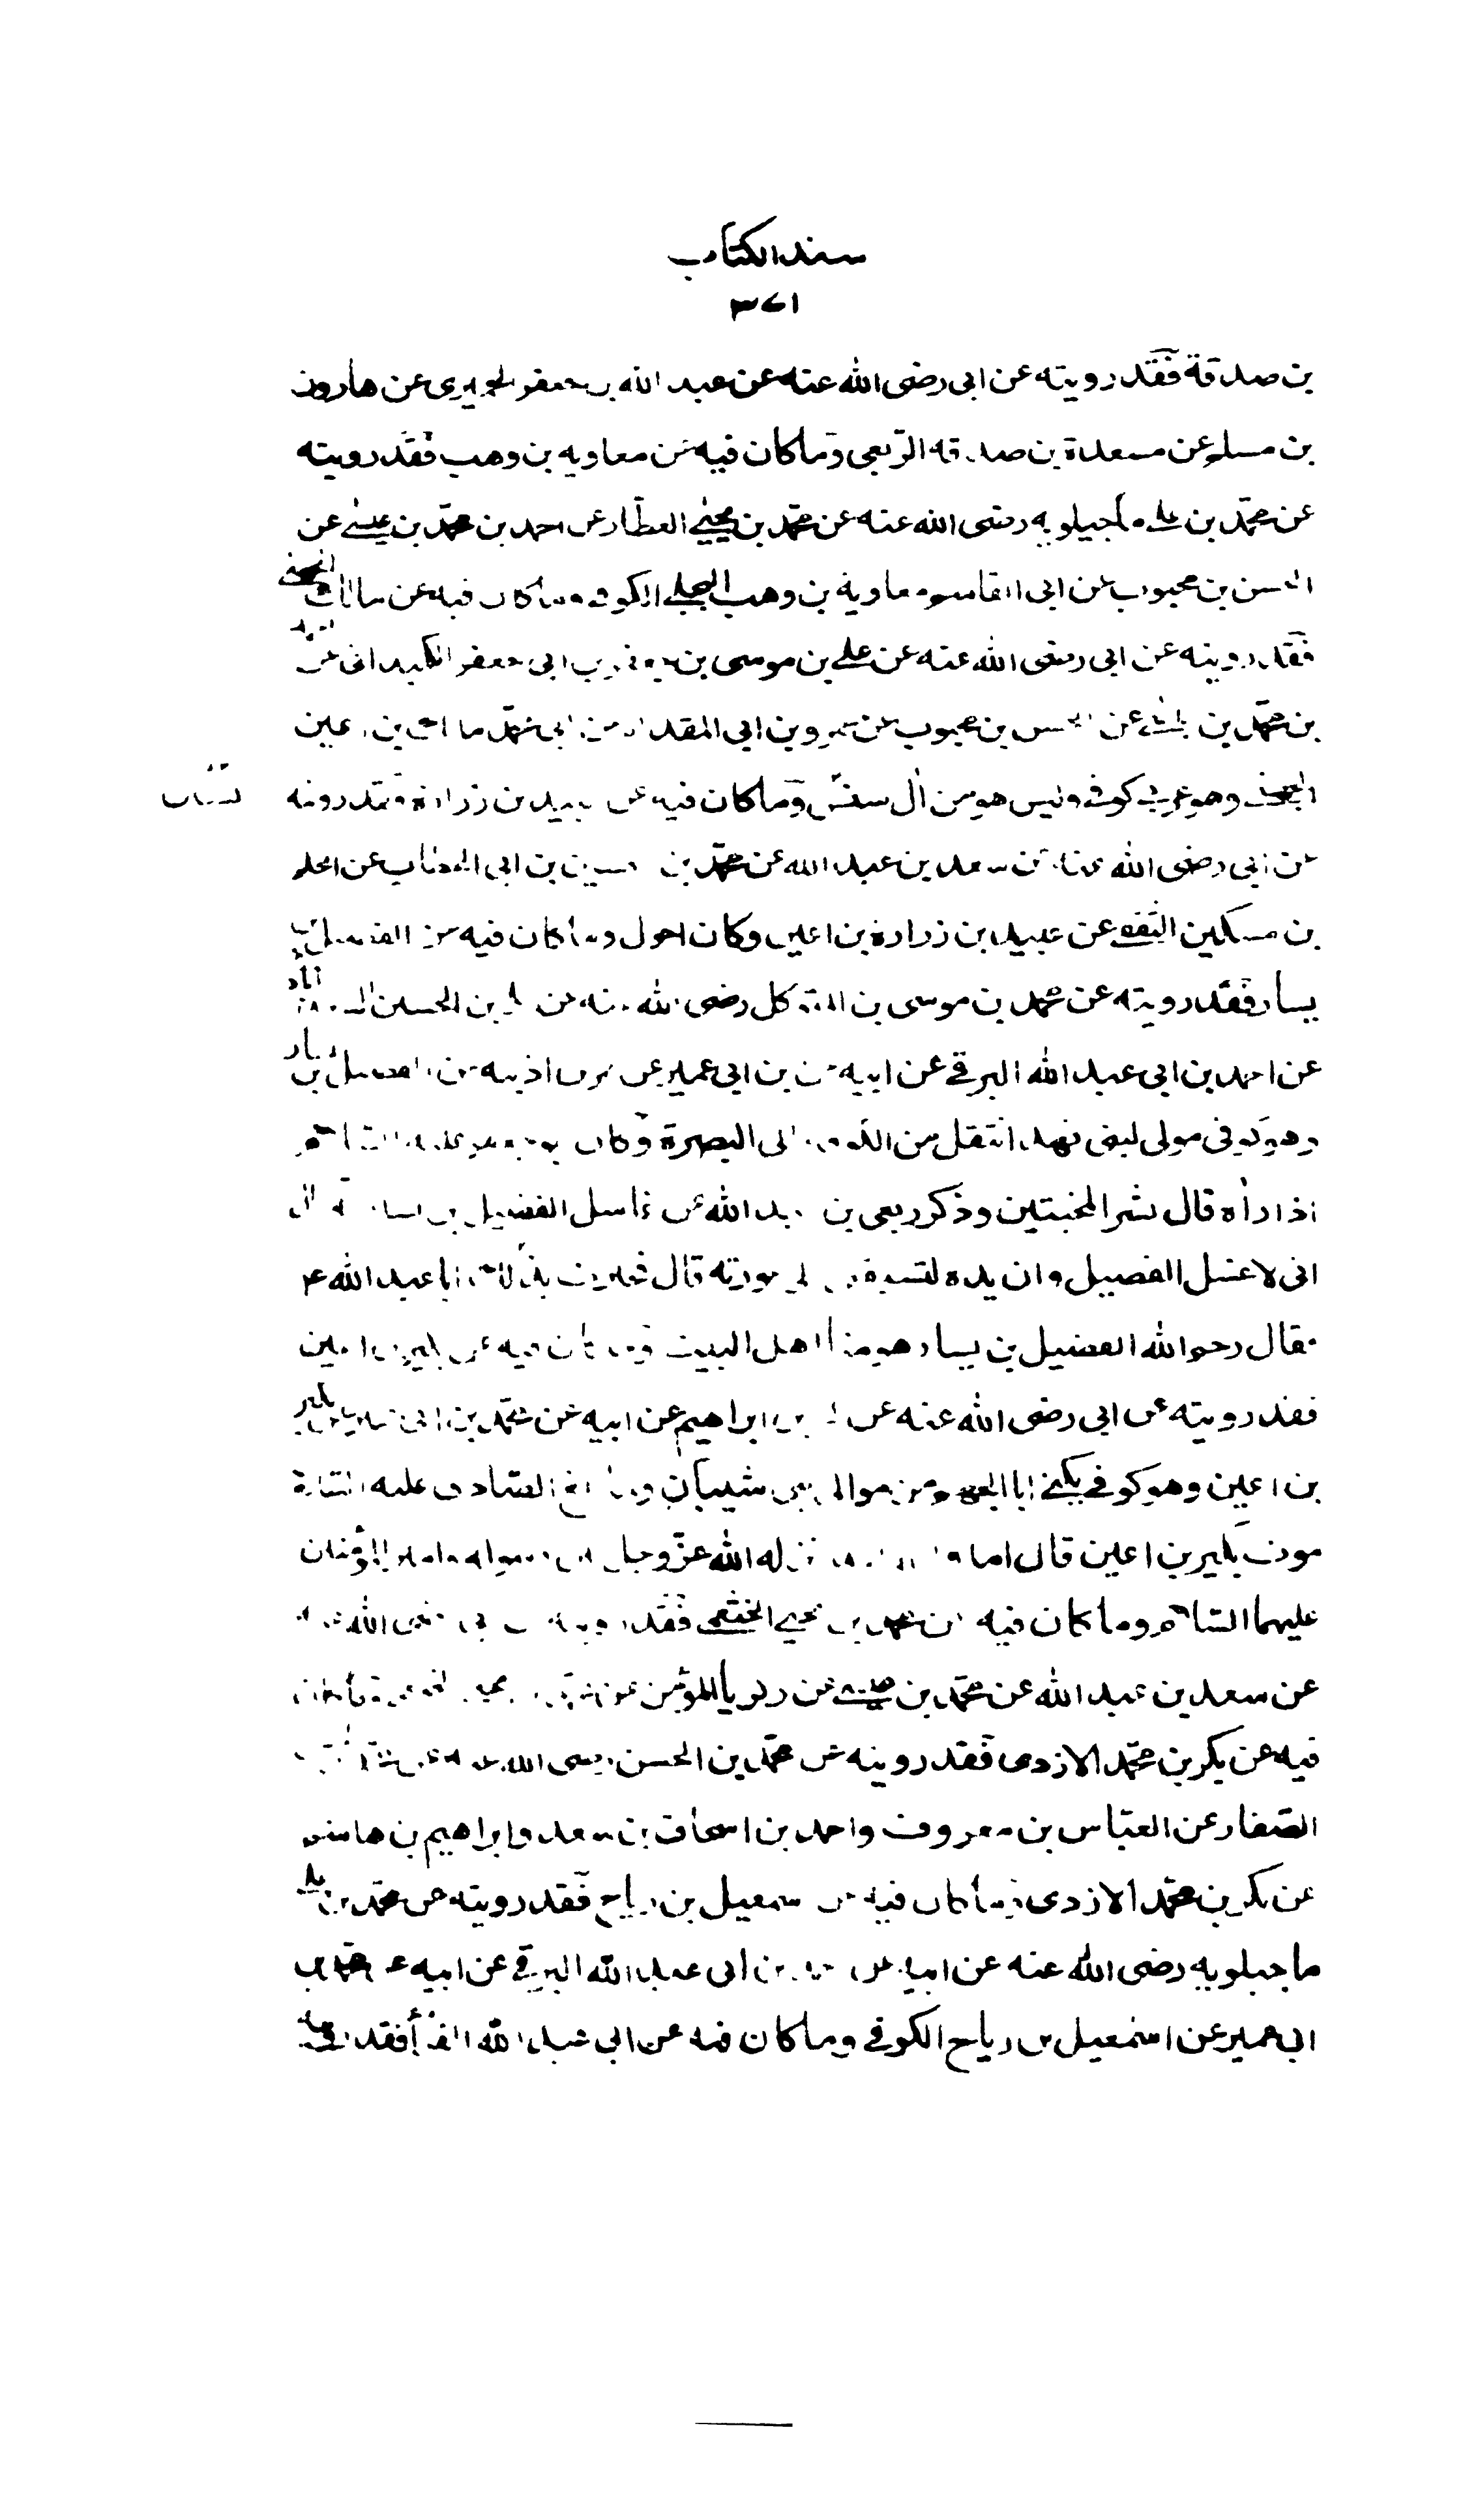 سند الكتاب
٣٧١
بن صدقة فقد رويته عن ابى رضى الله عنه عن عبد الله بن جعفر الحميرى عن هارون
بن مسلم عن مسعدة بن صدقه الربعى وما كان فيه عن معاويه بن وهب فقد رويته
عن محمد بن على ماجيلويه رضى الله عنه عن محمد بن يحيى العطار عن احمد بن محمد بن عيسى عن
الحسن بن محبوب عن ابى القاسم معاوية بن وهب البجلى الكوفى وما كان فيه عن مالك الجهنى
فقد رويته عن ابى رضى الله عنه عن على بن موسى بن جعفر بن ابى جعفر الكميدانى عن
بن محمد بن عن الحسن بن محبوب عن عمرو بن ابى المقدام عن ابى محمد مالك بن اعين
الجهنى وهو عربى كوفى وليس هو من آل سنسن وما كان فيه عن عبيد بن زرارة فقد رويته
عن ابى رضى الله عنه عن سعد بن عبد الله عن محمد بن الحسين بن ابى الخطاب عن الحكم
بن مسكين الثقفى عن عبيد بن زرارة بن اعين وكان احول وما كان فيه عن الفضيل بن
يسار فقد رويته عن محمد بن موسى بن المتوكل رضى الله عنه عن على بن الحسين السعدابادى
عن احمد بن ابى عبد الله البرقى عن ابيه عن بن ابى عمير عن عمر بن اذينه عن الفضيل بن يسار
وهو كوفى مولى لبنى نهد انتقل من الكوفة الى البصرة وكان ابو جعفر عليه السلام
اذا رآه قال بشر المخبتين وذكر ربعى بن عبد الله عن غاسل الفضيل بن يسار انه قال
انى لاغسل الفضيل وان يده لتسبقنى الى عورته قال فخبرت بذلك ابا عبد الله ع
فقال رحم الله الفضيل بن يسار هو منا اهل البيت وما كان فيه عن بكير بن اعين
فقد رويته عن ابى رضى الله عنه عن على بن ابراهيم عن ابيه عن محمد بن ابى عمير عن بكير
بن اعين وهو كوفى يكنى ابا الجهم من موالى بنى شيبان ولما بلغ الصادق عليه السلام
موت بكير بن اعين قال اما والله لقد انزله الله عز وجل بين رسوله وامير المؤمنين
عليهما السلام وما كان فيه عن محمد بن يحيى الخثعمى فقد رويته عن ابى رضى الله عنه
عن سعد بن عبد الله عن محمد بن عن زكريا المؤمن عن محمد بن يحيى الخثعمى وما كان
فيه عن بكر بن محمد الازدى فقد رويته عن محمد بن الحسن رضى الله عنه عن محمد بن الحسن
الصفار عن العباس بن معروف واحمد بن اسحاق بن سعد وابراهيم بن هاشم
عن بكر بن محمد الازدى وما كان فيه عن اسمعيل بن رباح فقد رويته عن محمد بن على
ماجيلويه رضى الله عنه عن ابيه عن احمد بن ابى عبد الله البرقى عن ابيه عن محمد بن
ابى عمير عن اسمعيل بن رياح الكوفى وما كان فيه عن ابى عبد الله الفرا فقد رويته